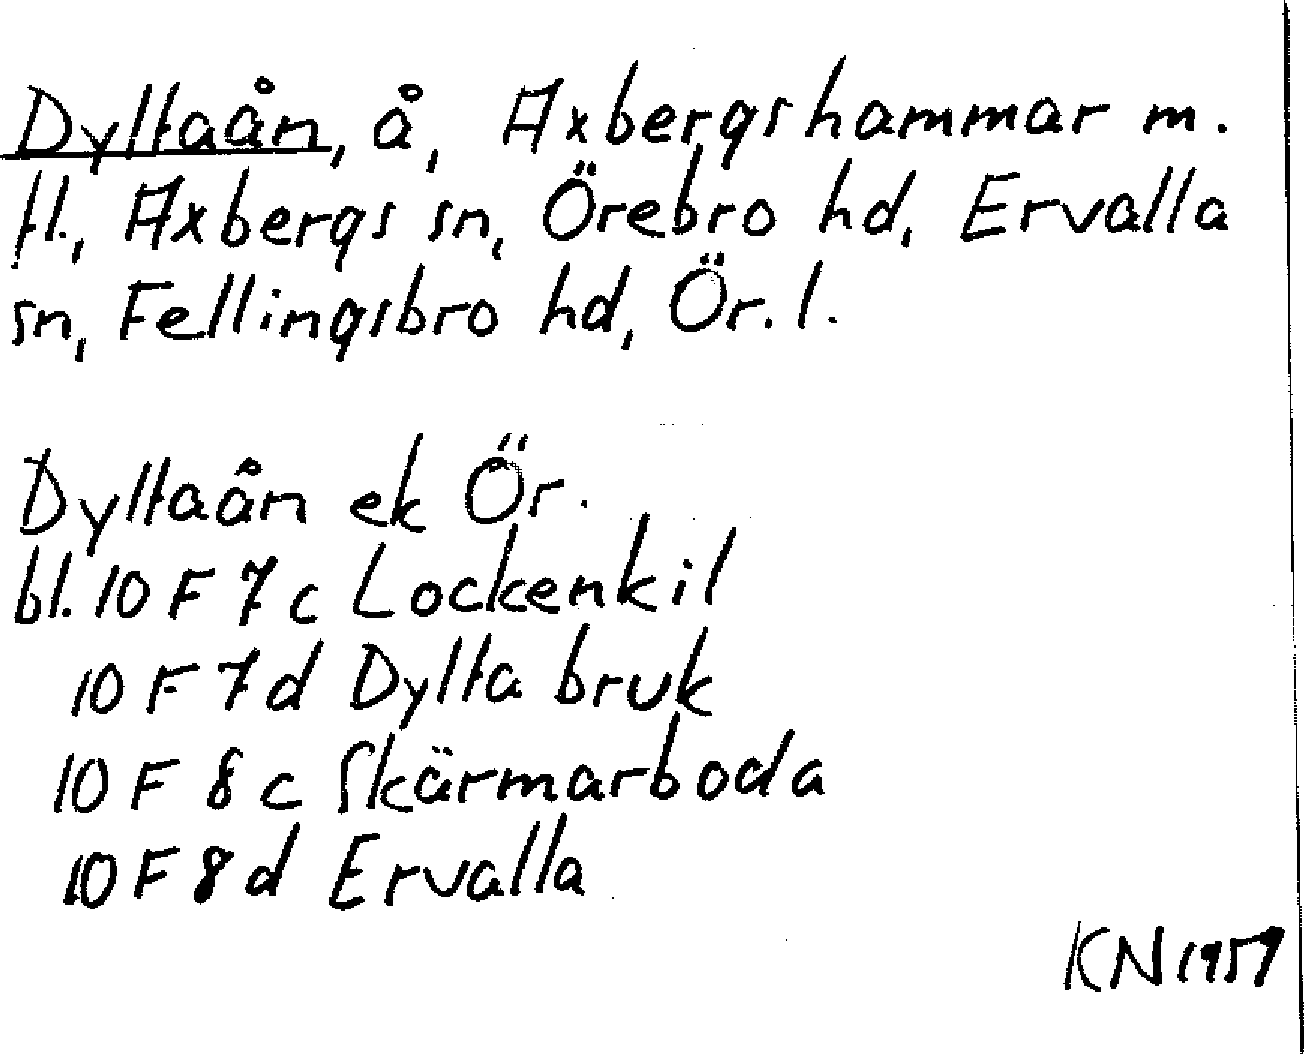 Dyltaån, å, Axbergshammar m.
fl., Axbergs sn, Örebro hd, Ervalla
sn, Fellingsbro hd, Ör. l.
Dyltaån ek Ör.
bl. 10 F 7 c Lockenkil
10 F 7 d Dylta bruk
10 F 8 c Skärmarboda
10 F 8 d Ervalla
KN